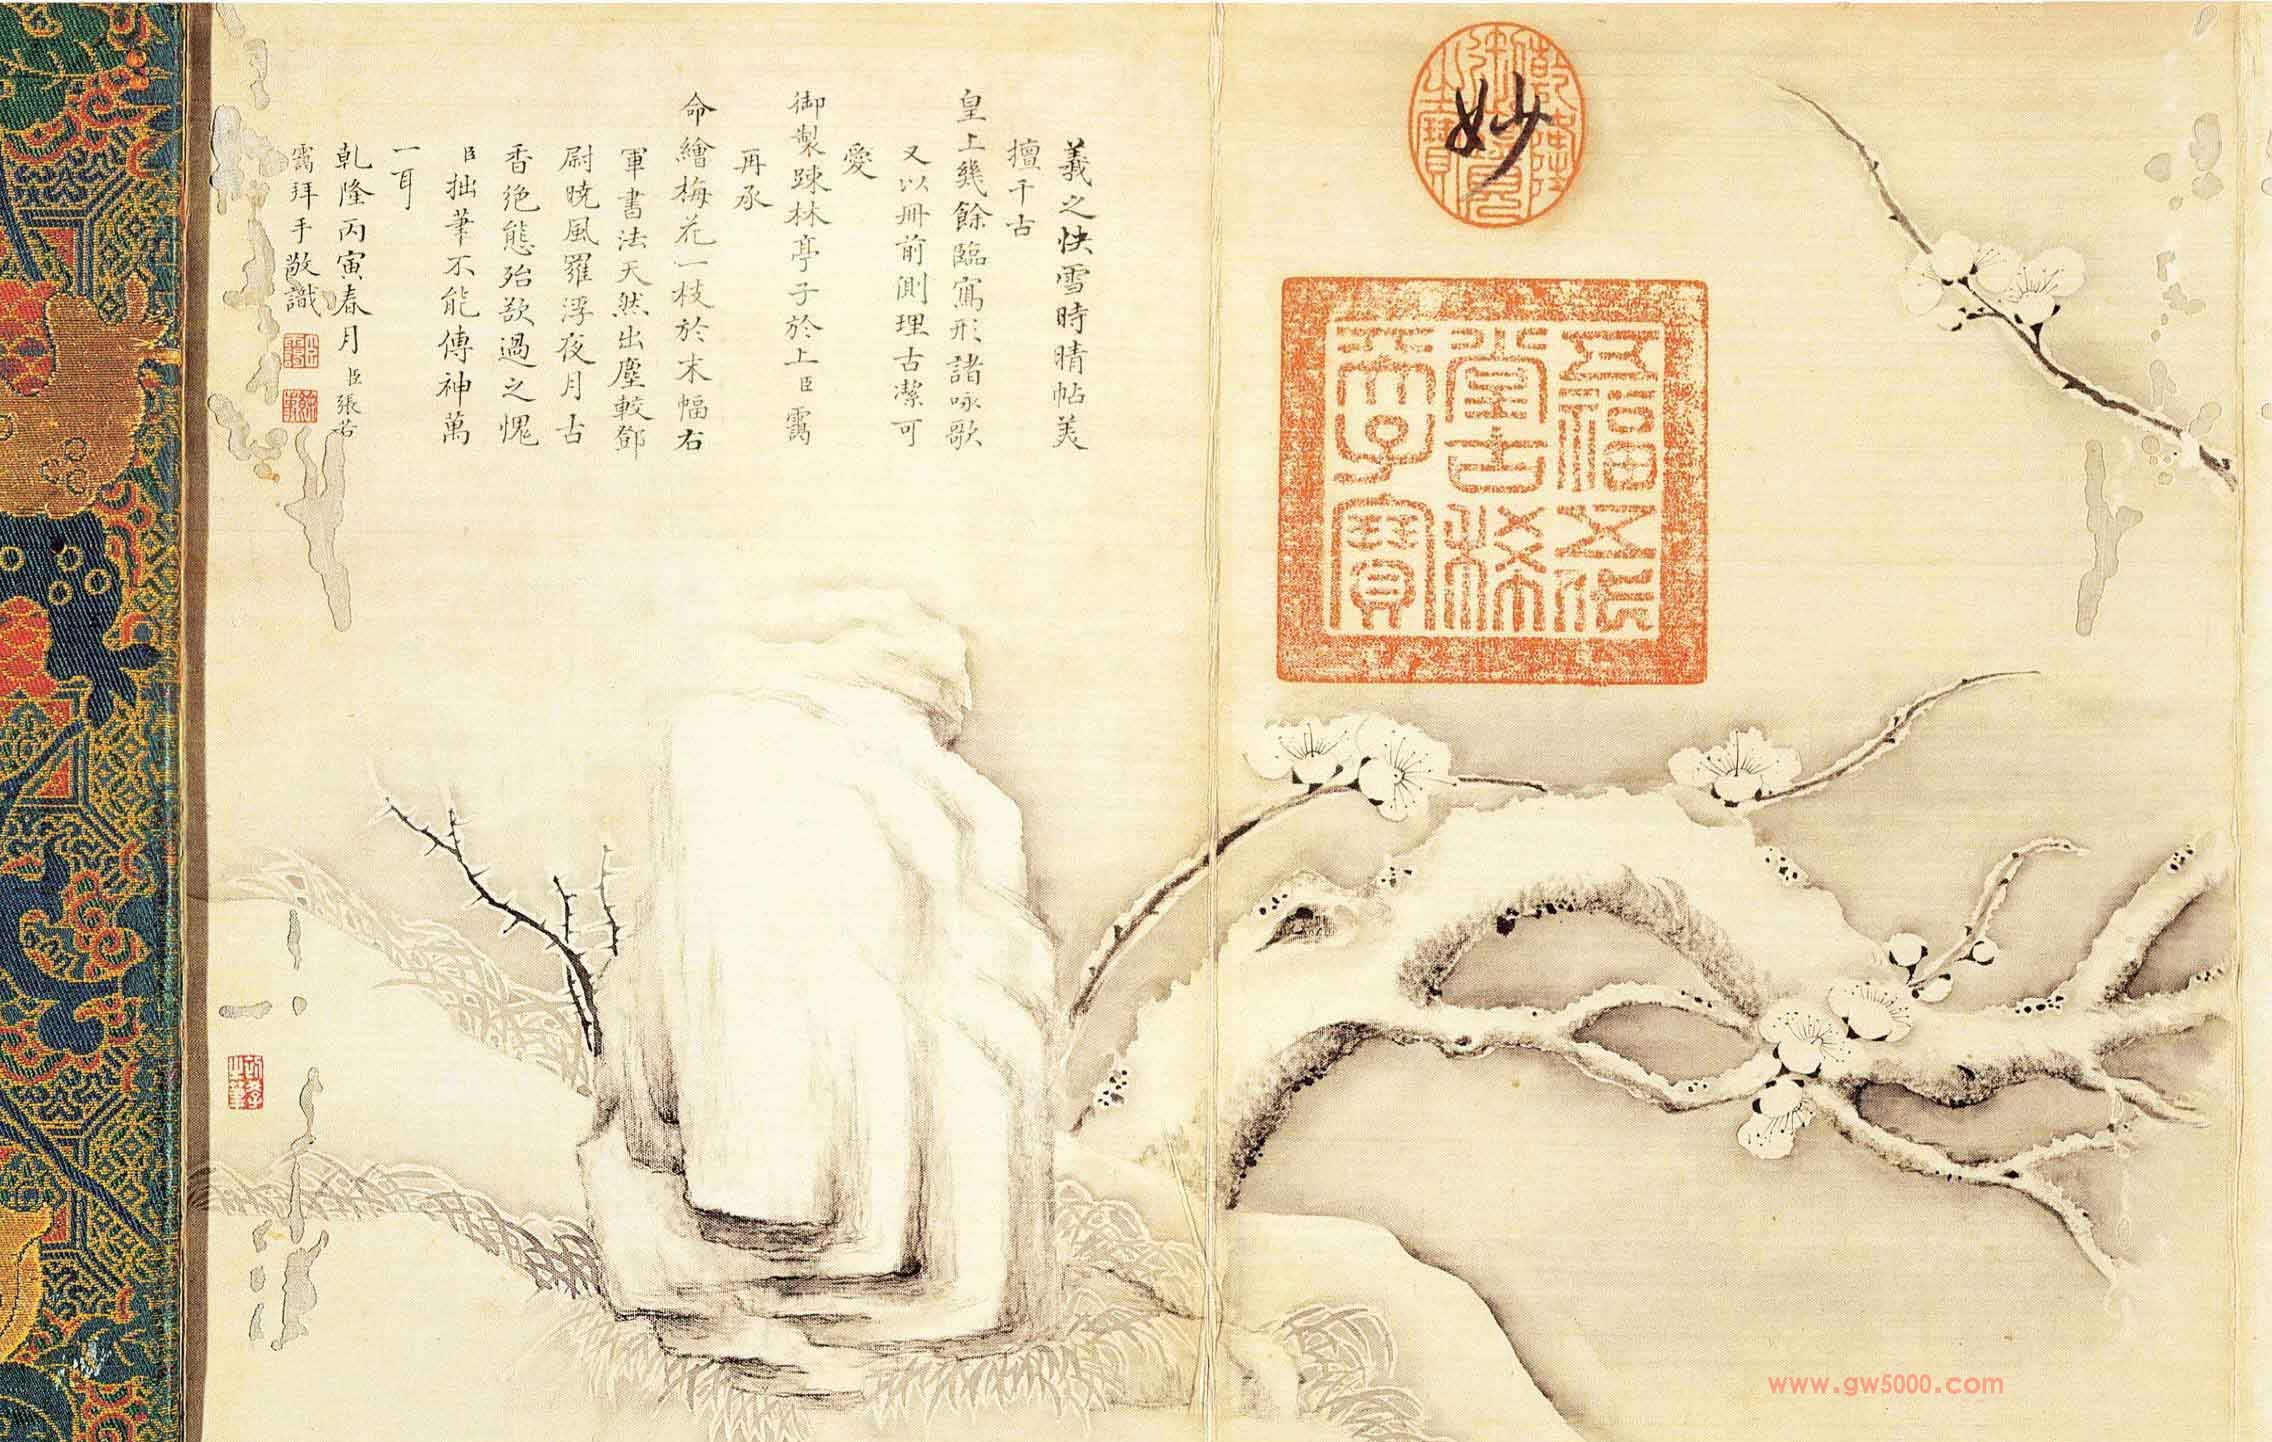 妙
乾隆御覽之寶
五福五代
堂古稀
天子寶
羲之快雪時晴帖美
擅千古
皇上幾餘臨寫形諸咏歌
又以冊前側理古潔可
愛
御製疎林亭子於上臣靄
再承
命繪梅花一枝於末幅右
軍書法天然出塵較鄧
尉曉風羅浮夜月古
香絕態殆欲過之愧
臣拙筆不能傳神萬
一耳
乹隆丙寅春月臣張若
靄拜手敬識
www.gw5000.com